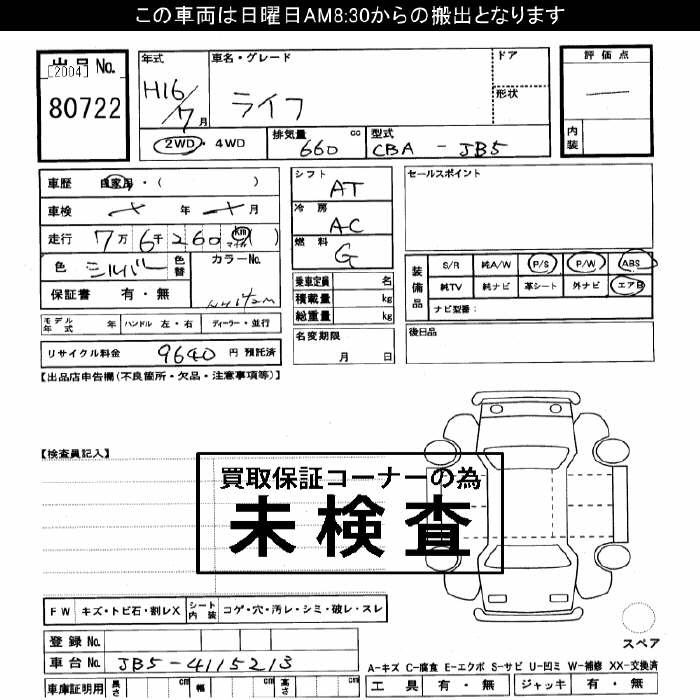 この車両は日曜日AM8:30からの搬出となります
出品No.
[2004]
80722
年式
H16/7月
車名・グレード
ライフ
ドア
形状
評価点
内装
2WD・4WD
排気量 660 cc
型式 CBA - JB5
車歴 自家用・( )
車検 年 月
走行 7万6千260 km マイル( )
色 シルバー 色替 カラーNo.
保証書 有・無
シフト AT
冷房 AC
燃料 G
乗車定員 名
積載量 kg
総重量 kg
セールスポイント
装備品
S/R 純A/W P/S P/W ABS
純TV 純ナビ 革シート 外ナビ エアB
ナビ型番:
モデル年式 年 ハンドル 左・右 ディーラー・並行
リサイクル料金 9640 円 預託済
名変期限
月 日
後日品
【出品店申告欄(不良箇所・欠品・注意事項等)】
【検査員記入】
買取保証コーナーの為
未検査
FW キズ・トビ石・割レX シート内装 コゲ・穴・汚レ・シミ・破レ・スレ
登録No.
車台No. JB5-4115213
車庫証明用 長さ cm 幅 cm 高さ cm
スペア
A-キズ C-腐食 E-エクボ S-サビ U-凹ミ W-補修 XX-交換済
工具 有・無 ジャッキ 有・無